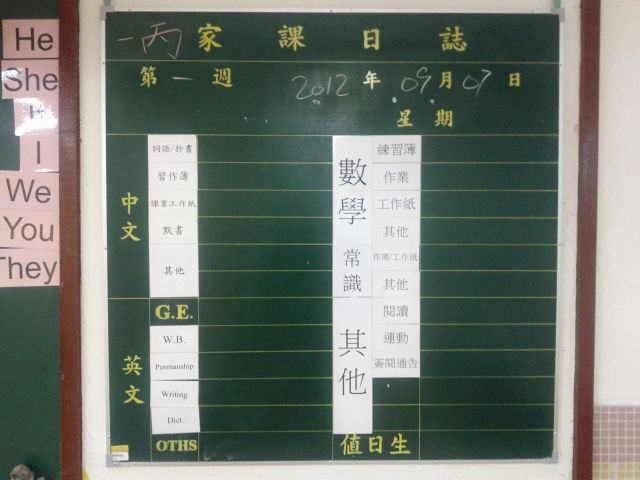 He
She
I
We
You
They
一丙家課日誌
第一週 2012年09月07日
星期
中文
詞語/抄書
習作簿
課業工作紙
默書
其他
英文
G.E.
W.B.
Penmanship
Writing
Dict.
OTHS
數學
練習簿
作業
工作紙
其他
常識
作業/工作紙
其他
其他
閱讀
運動
簽閱通告
值日生